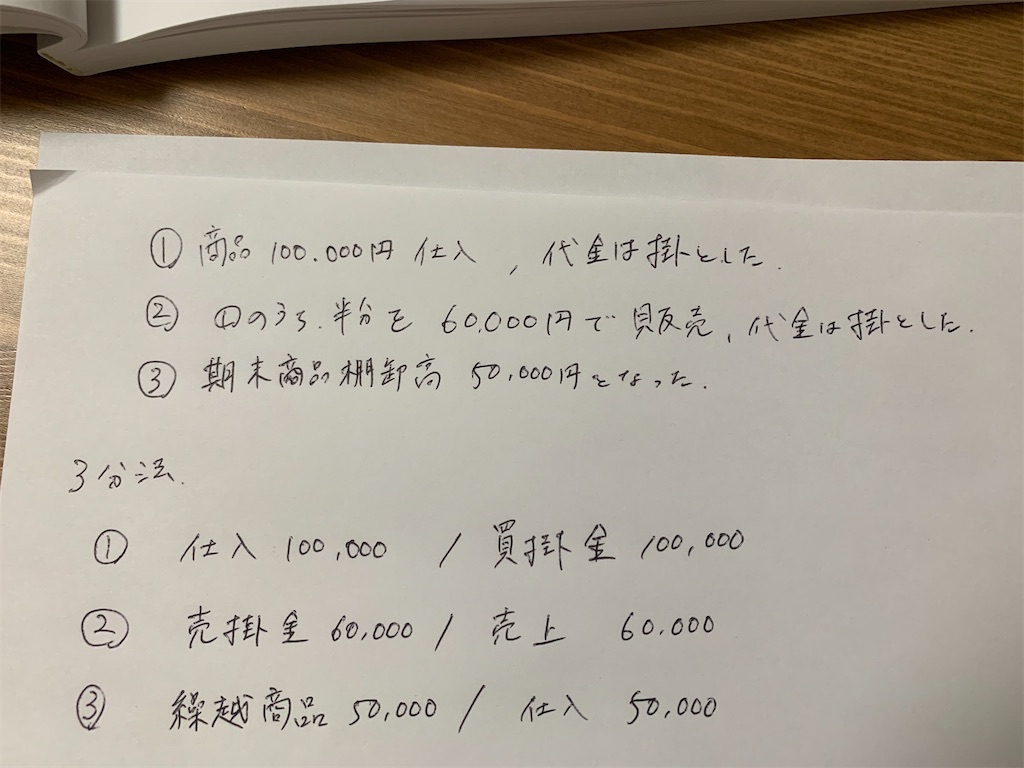 ① 商品 100.000円 仕入 , 代金は掛とした.
② ①のうち. 半分を 60,000円で販売, 代金は掛とした.
③ 期末商品棚卸高 50,000円となった.
3分法.
① 仕入 100,000 / 買掛金 100,000
② 売掛金 60,000 / 売上 60,000
③ 繰越商品 50,000 / 仕入 50,000